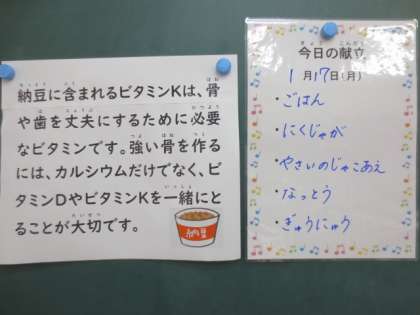 納豆に含まれるビタミンKは、骨
や歯を丈夫にするために必要
なビタミンです。強い骨を作る
には、カルシウムだけでなく、ビ
タミンDやビタミンKを一緒にと
ることが大切です。
納豆
今日の献立
1月17日(月)
・ごはん
・にくじゃが
・やさいのじゃこあえ
・なっとう
・ぎゅうにゅう